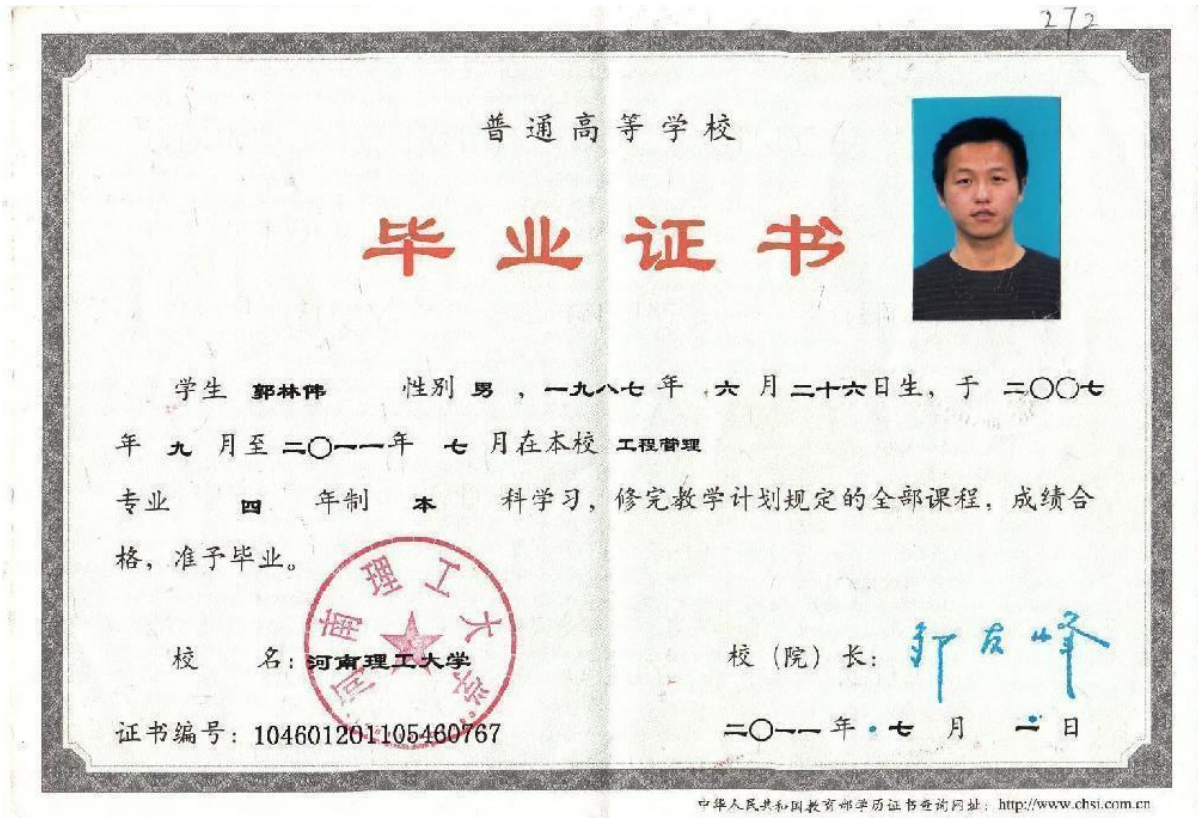 272
普通高等学校
毕业证书
学生 郭林伟 性别 男 ，一九八七 年 六 月 二十六日生，于 二〇〇七
年 九 月至 二〇一一年 七 月在本校 工程管理
专业 四 年制 本 科学习，修完教学计划规定的全部课程，成绩合
格，准予毕业。
河南理工大学
校 名：河南理工大学
校（院）长：邹友峰
证书编号：104601201105460767
二〇一一 年 七 月 日
中华人民共和国教育部学历证书查询网址：http://www.chsi.com.cn